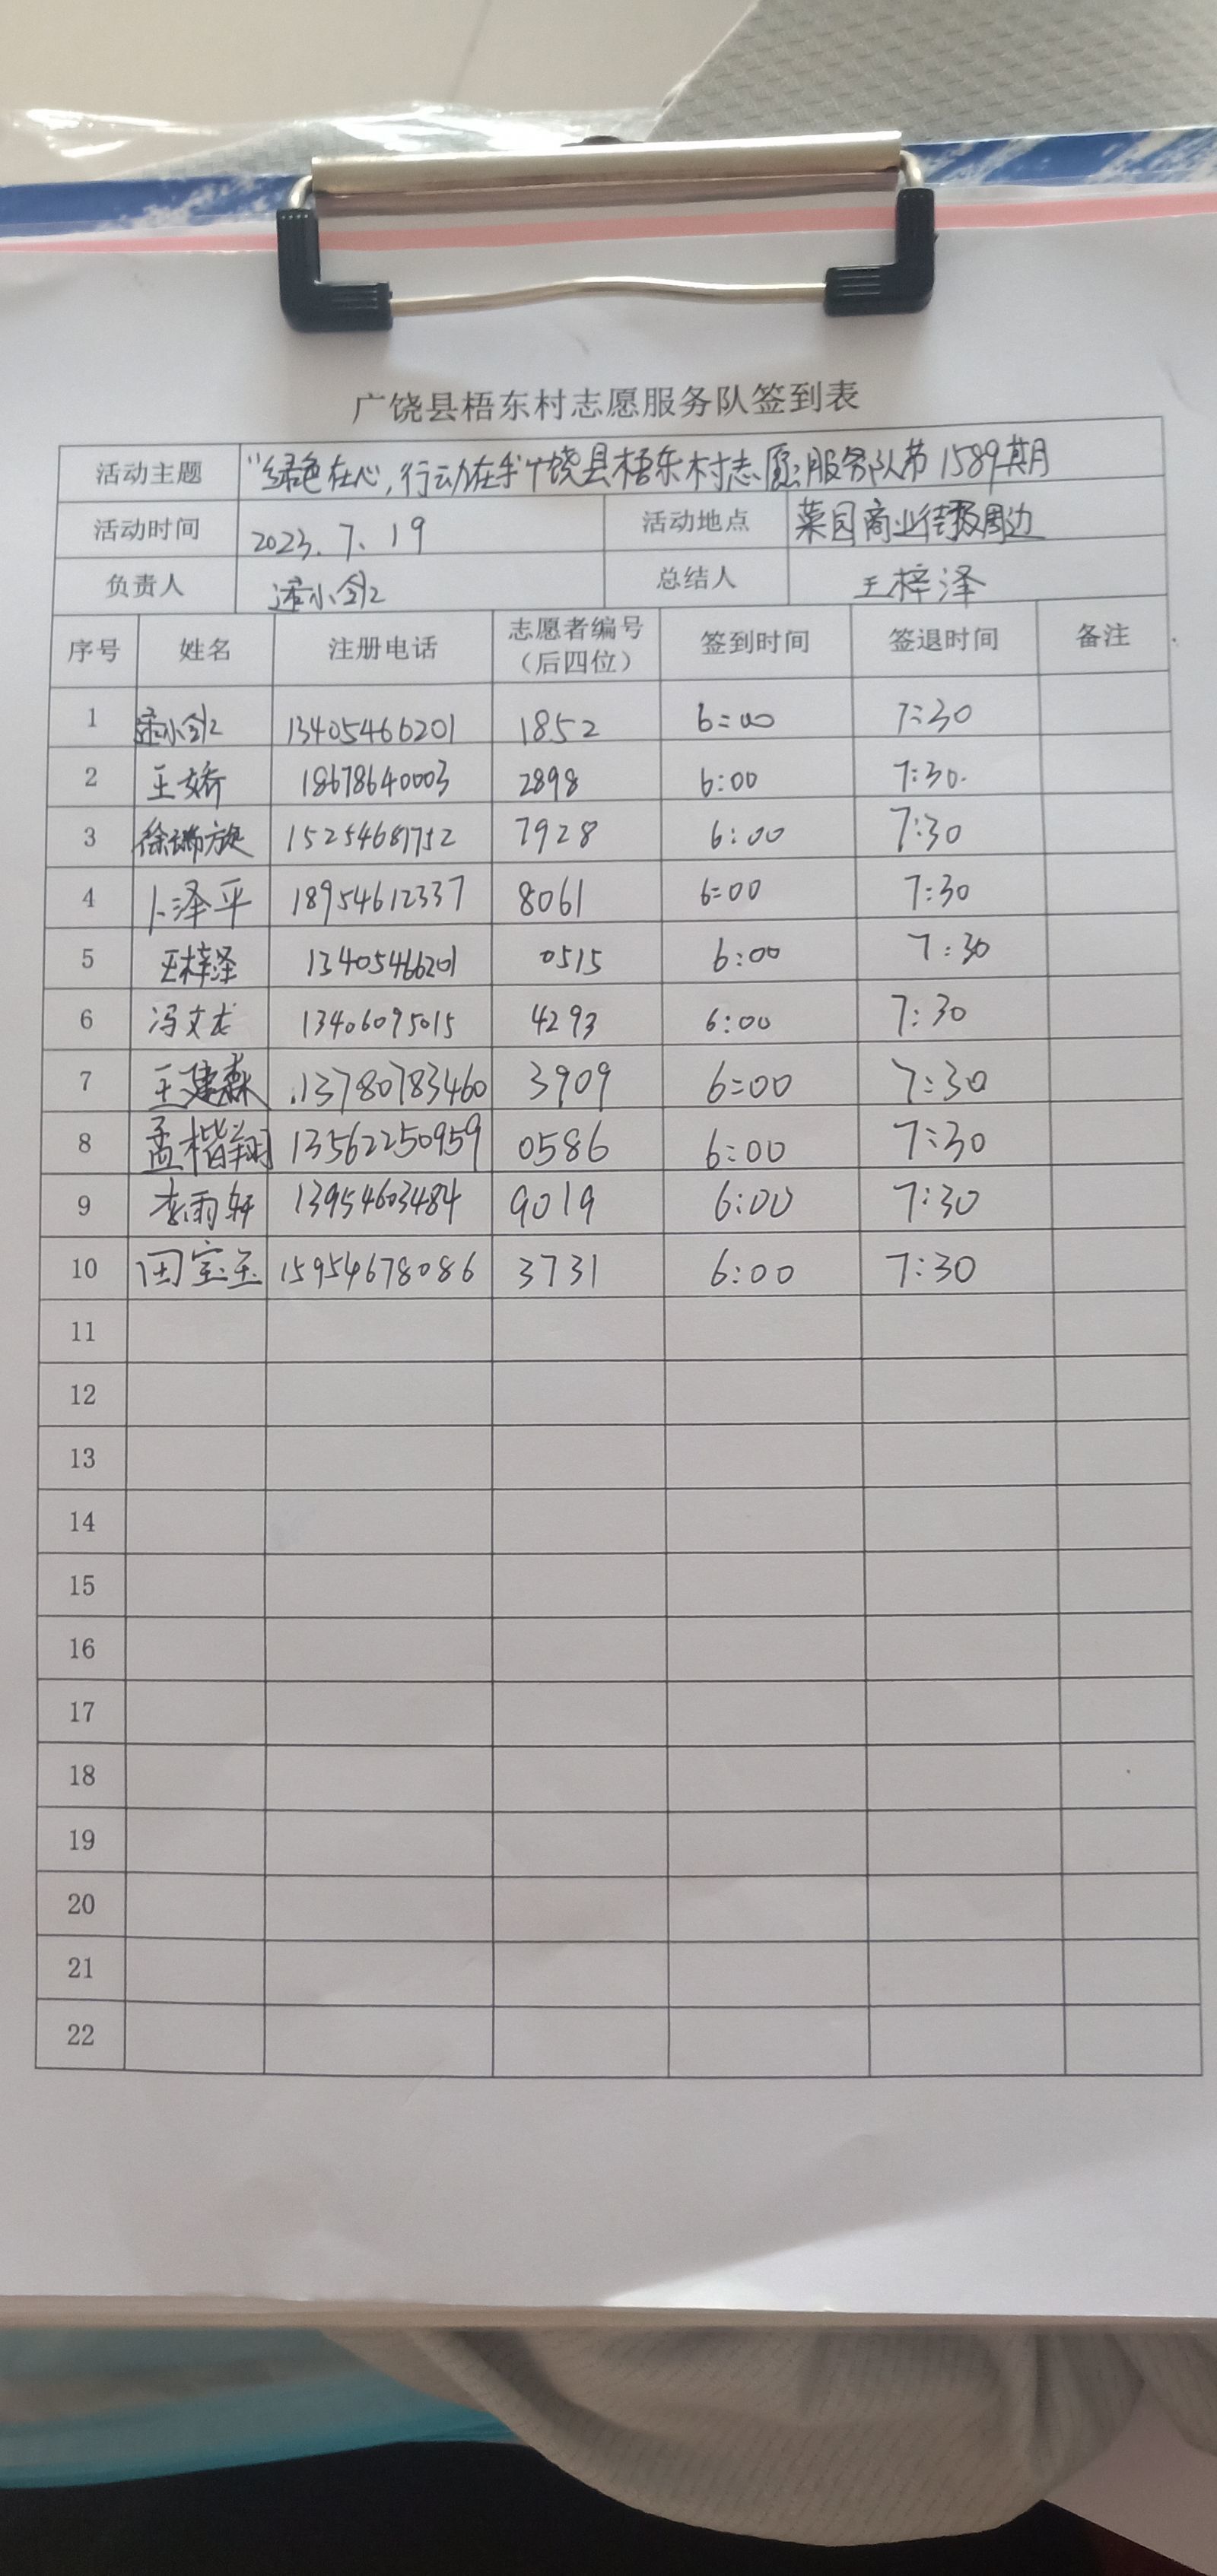 广饶县梧东村志愿服务队签到表
活动主题 "绿色在心,行动在手"广饶县梧东村志愿服务队第1589期月
活动时间 2023.7.19 活动地点 菜园商业街及周边
负责人 小 总结人 王梓泽
序号 姓名 注册电话 志愿者编号（后四位） 签到时间 签退时间 备注
1 13405466201 1852 6:00 7:30
2 王娇 18678640003 2898 6:00 7:30
3 徐瑞旋 15254687752 7928 6:00 7:30
4 卜泽平 18954612337 8061 6:00 7:30
5 王梓泽 13405466201 0515 6:00 7:30
6 冯文龙 13406095015 4293 6:00 7:30
7 王建森 13780783460 3909 6:00 7:30
8 孟楷翔 13562250959 0586 6:00 7:30
9 李雨轩 13954603484 9019 6:00 7:30
10 田宝玉 15954678086 3731 6:00 7:30
11
12
13
14
15
16
17
18
19
20
21
22